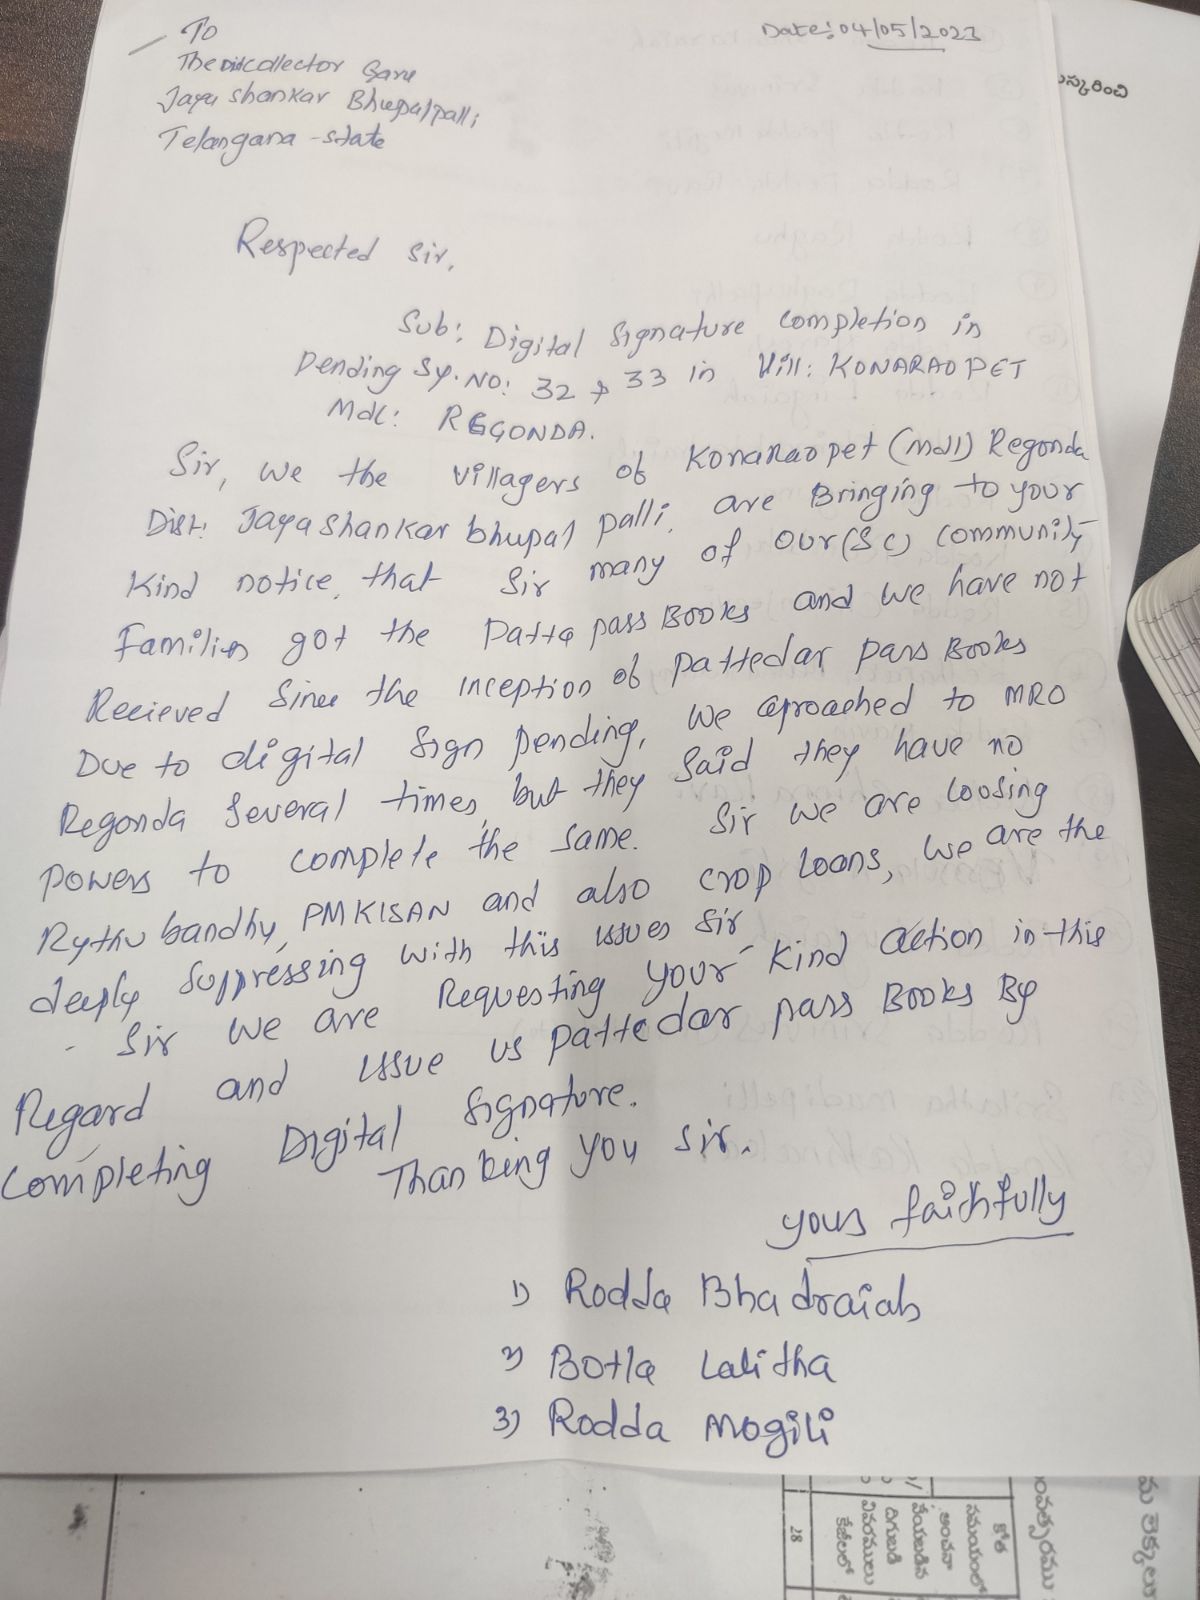 To
Date: 04/05/2023
The Dist collector Garu
Jaya shankar Bhupalpalli
Telangana - state
Respected Sir,
Sub: Digital Signature completion in
Pending Sy.NO: 32 & 33 in Vill: KONARAOPET
Mdl: REGONDA.
Sir, we the villagers of Konaraopet (Mdl) Regonda
Dist: Jayashankar bhupal palli. are Bringing to your
Kind notice, that Sir many of our (SC) community
Families got the Patta pass Books and we have not
Recieved Since the inception of pattedar pass Books
Due to digital Sign pending, we aproached to MRO
Regonda several times, but they said they have no
powers to complete the same. Sir we are loosing
Rythu bandhu, PMKISAN and also crop loans, we are the
deeply suppressing with this issues sir
Sir we are Requesting your kind action in this
Regard and issue us pattedar pass Books By
Completing Digital Signature.
Thanking you sir.
yous faithfully
1) Rodda Bhadraiah
2) Botla Lalitha
3) Rodda Mogili
28